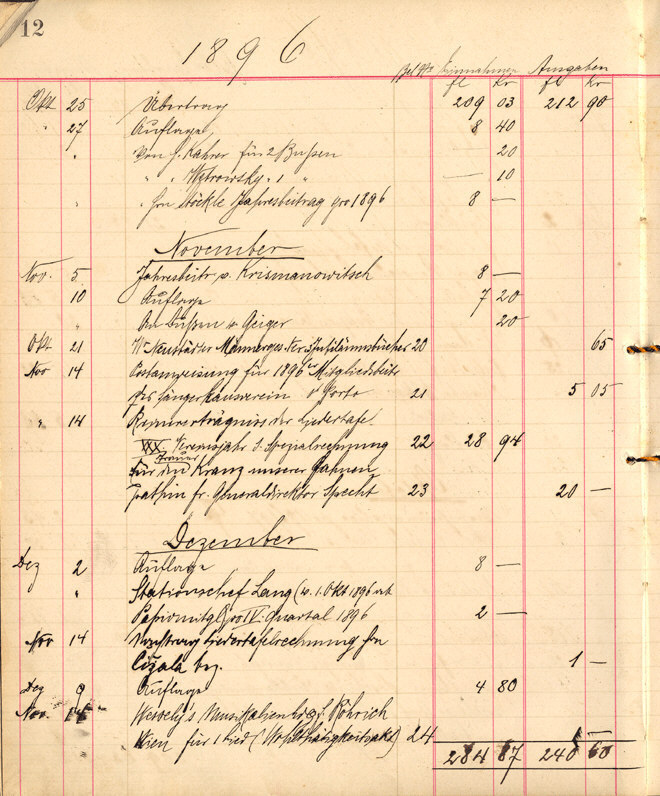 12
1896
Bel No Einnahmen Ausgaben
fl kr fl kr
Okt 25 Übertrag 209 03 212 90
" 27 Auflage 8 40
" von H. Kahrer für 2 Bußen 20
" " Wytrowsky " 1 " — 10
" " Hrn Stöckle Jahresbeitrag pro 1896 8 —
November
Nov. 5 Jahresbeitr v. Krismanowitsch 8 —
10 Auflage 7 20
" An Bußen v. Geiger 20
Okt 21 Wr Neustädter Männerges. Ver. Jubiläumsbücher 20 65
Nov 14 Postanweisung für 1896er Mitgliedsbeitr
des Sängerhausverein Porto 21 5 05
" 14 Reinerträgniss der Liedertafel
XXX Vereinsjahr s. Spezialrechnung 22 28 94
Trauer
Für den Kranz unserer Fahnen
pathin fr. Generaldirektor Specht 23 20 —
Dezember
Dez 2 Auflage 8 —
" Stationschef Lang (v. 1. Okt 1896 ab
Passivmitgl) pro IV. Quartal 1896 2 —
Nov 14 Liedertafelrechnung Hrn
bez. 1 —
Dez 9 Auflage 4 80
Nov. 14 Wessely's Musikalien Röhrich
Wien für 1 Lied (Wohlthätigkeitsakt) 24 1 —
284 87 240 60